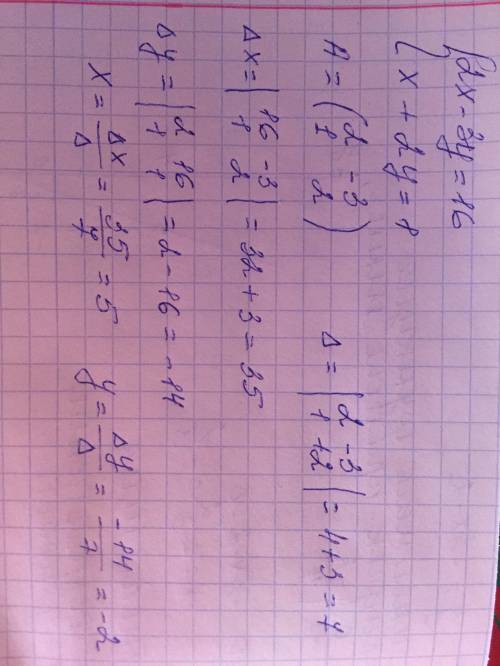 {2x - 3y = 16
x + 2y = 1
A = (2 -3
1 2) Δ = |2 -3
1 +2| = 4 + 3 = 7
Δx = |16 -3
1 2| = 32 + 3 = 35
Δy = |2 16
1 1| = 2 - 16 = -14
x = Δx/Δ = 35/7 = 5 y = Δy/Δ = -14/7 = -2